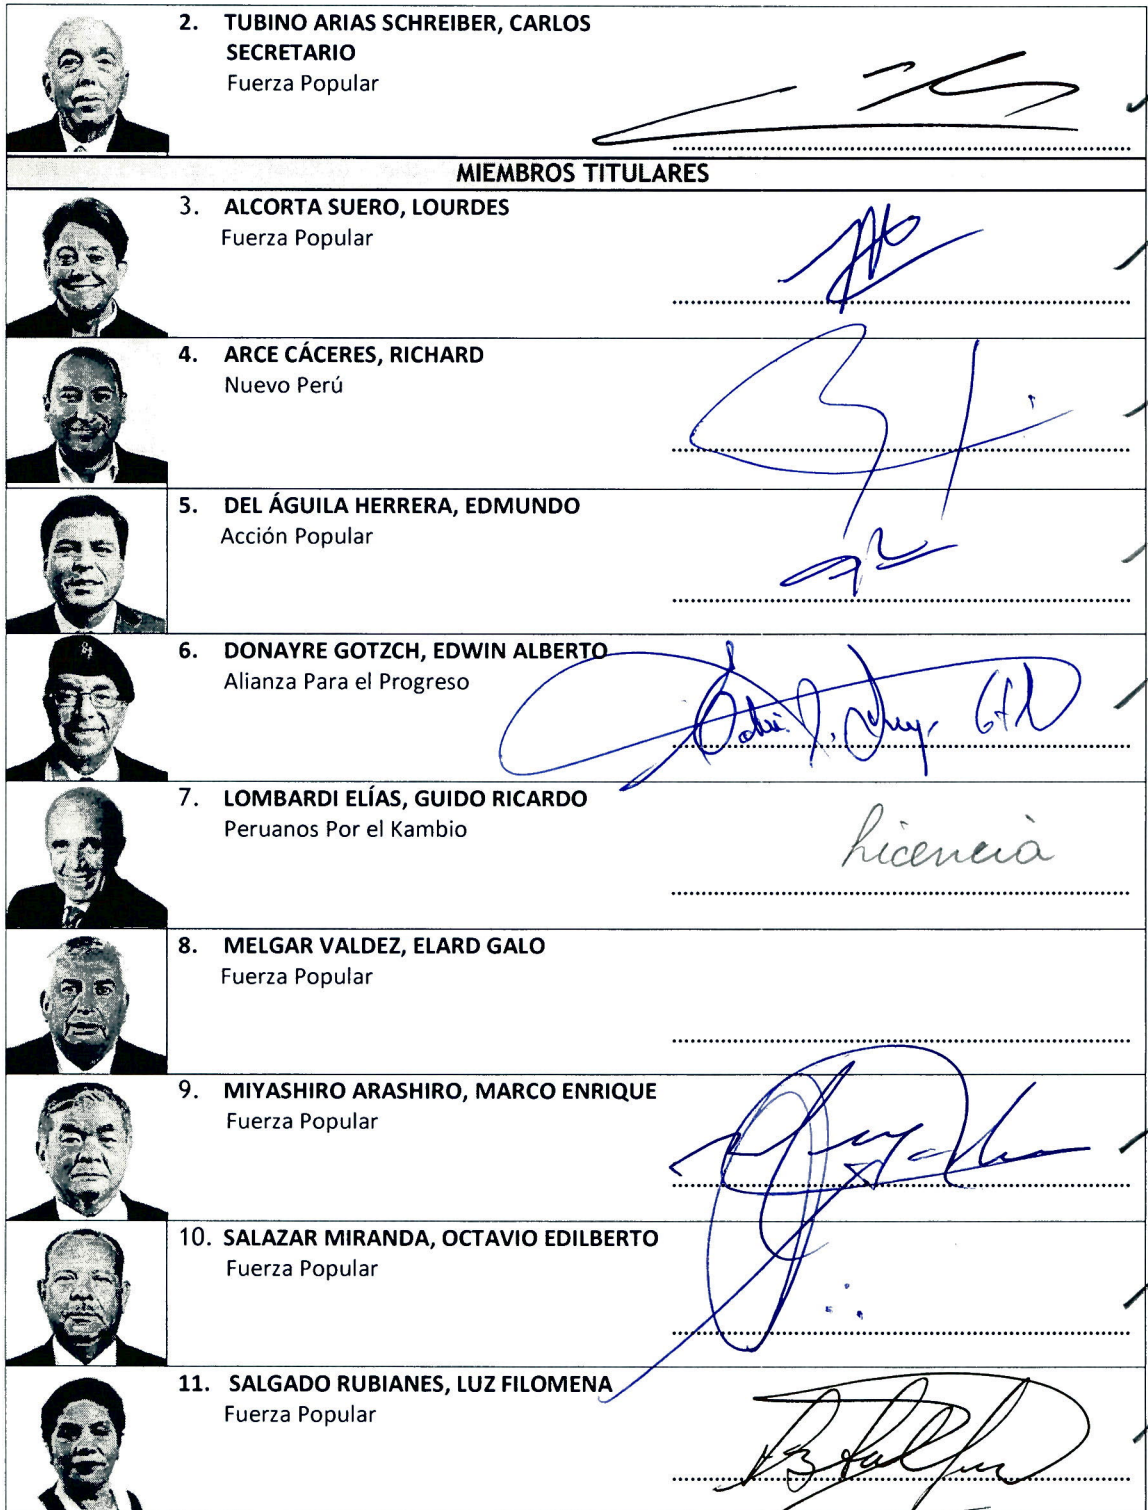 2. TUBINO ARIAS SCHREIBER, CARLOS
SECRETARIO
Fuerza Popular
MIEMBROS TITULARES
3. ALCORTA SUERO, LOURDES
Fuerza Popular
4. ARCE CÁCERES, RICHARD
Nuevo Perú
5. DEL ÁGUILA HERRERA, EDMUNDO
Acción Popular
6. DONAYRE GOTZCH, EDWIN ALBERTO
Alianza Para el Progreso
7. LOMBARDI ELÍAS, GUIDO RICARDO
Peruanos Por el Kambio
Licencia
8. MELGAR VALDEZ, ELARD GALO
Fuerza Popular
9. MIYASHIRO ARASHIRO, MARCO ENRIQUE
Fuerza Popular
10. SALAZAR MIRANDA, OCTAVIO EDILBERTO
Fuerza Popular
11. SALGADO RUBIANES, LUZ FILOMENA
Fuerza Popular